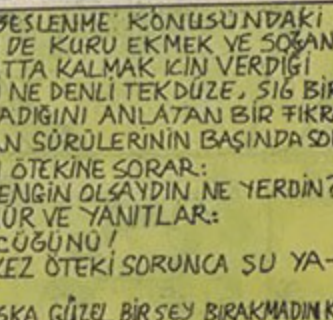 BESLENME KONUSUNDAKİ
DE KURU EKMEK VE SOĞAN
TTA KALMAK İÇİN VERDİĞİ
NE DENLİ TEKDÜZE, SIĞ BİR
ADIĞINI ANLATAN BİR FIKRA
AN SÜRÜLERİNİN BAŞINDA SO
ÖTEKİNE SORAR:
ENGİN OLSAYDIN NE YERDİN?
ÜR VE YANITLAR:
CÜĞÜNÜ!
KEZ ÖTEKİ SORUNCA ŞU YA-
ŞKA GÜZEL BİR ŞEY BIRAKMADIN K